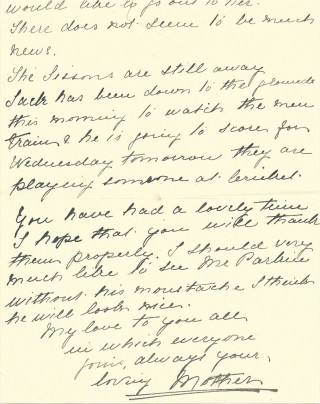 would like to go out to her.
There does not seem to be much
news.
The Sissons are still away
Jack has been down to the grounds
this morning to watch the men
train & he is going to score for
Wednesday tomorrow they are
playing someone at cricket.
You have had a lovely time
I hope that you will thank
them properly. I should very
much like to see Mr Parkin
without his moustache I think
he will look nice.
My love to you all
in which everyone
joins, always your,
loving Mother